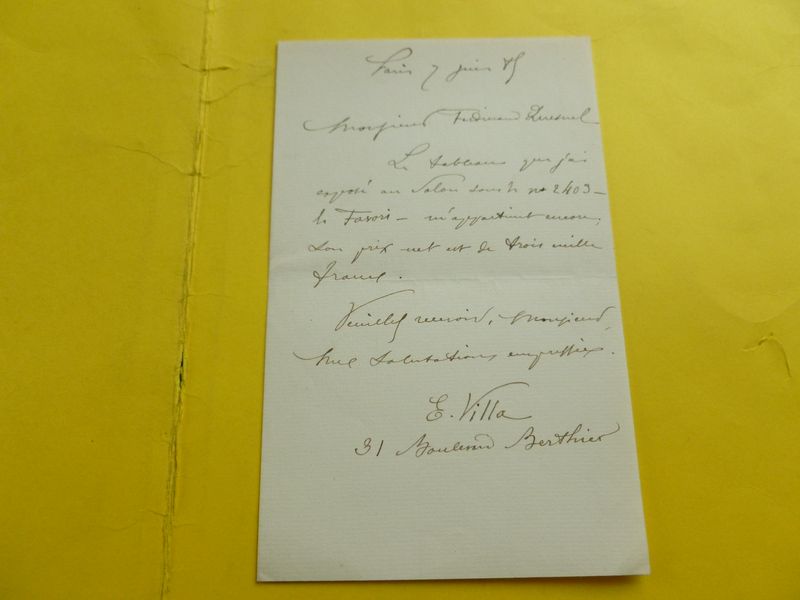 Paris 7 juin 85
Monsieur Ferdinand Quesnel
Le tableau que j'ai
exposé au Salon sous le n° 2403 -
le Favori - m'appartient encore;
son prix net est de trois mille
francs.
Veuillez recevoir, Monsieur,
mes salutations empressées.
E. Villa
31 Boulevard Berthier